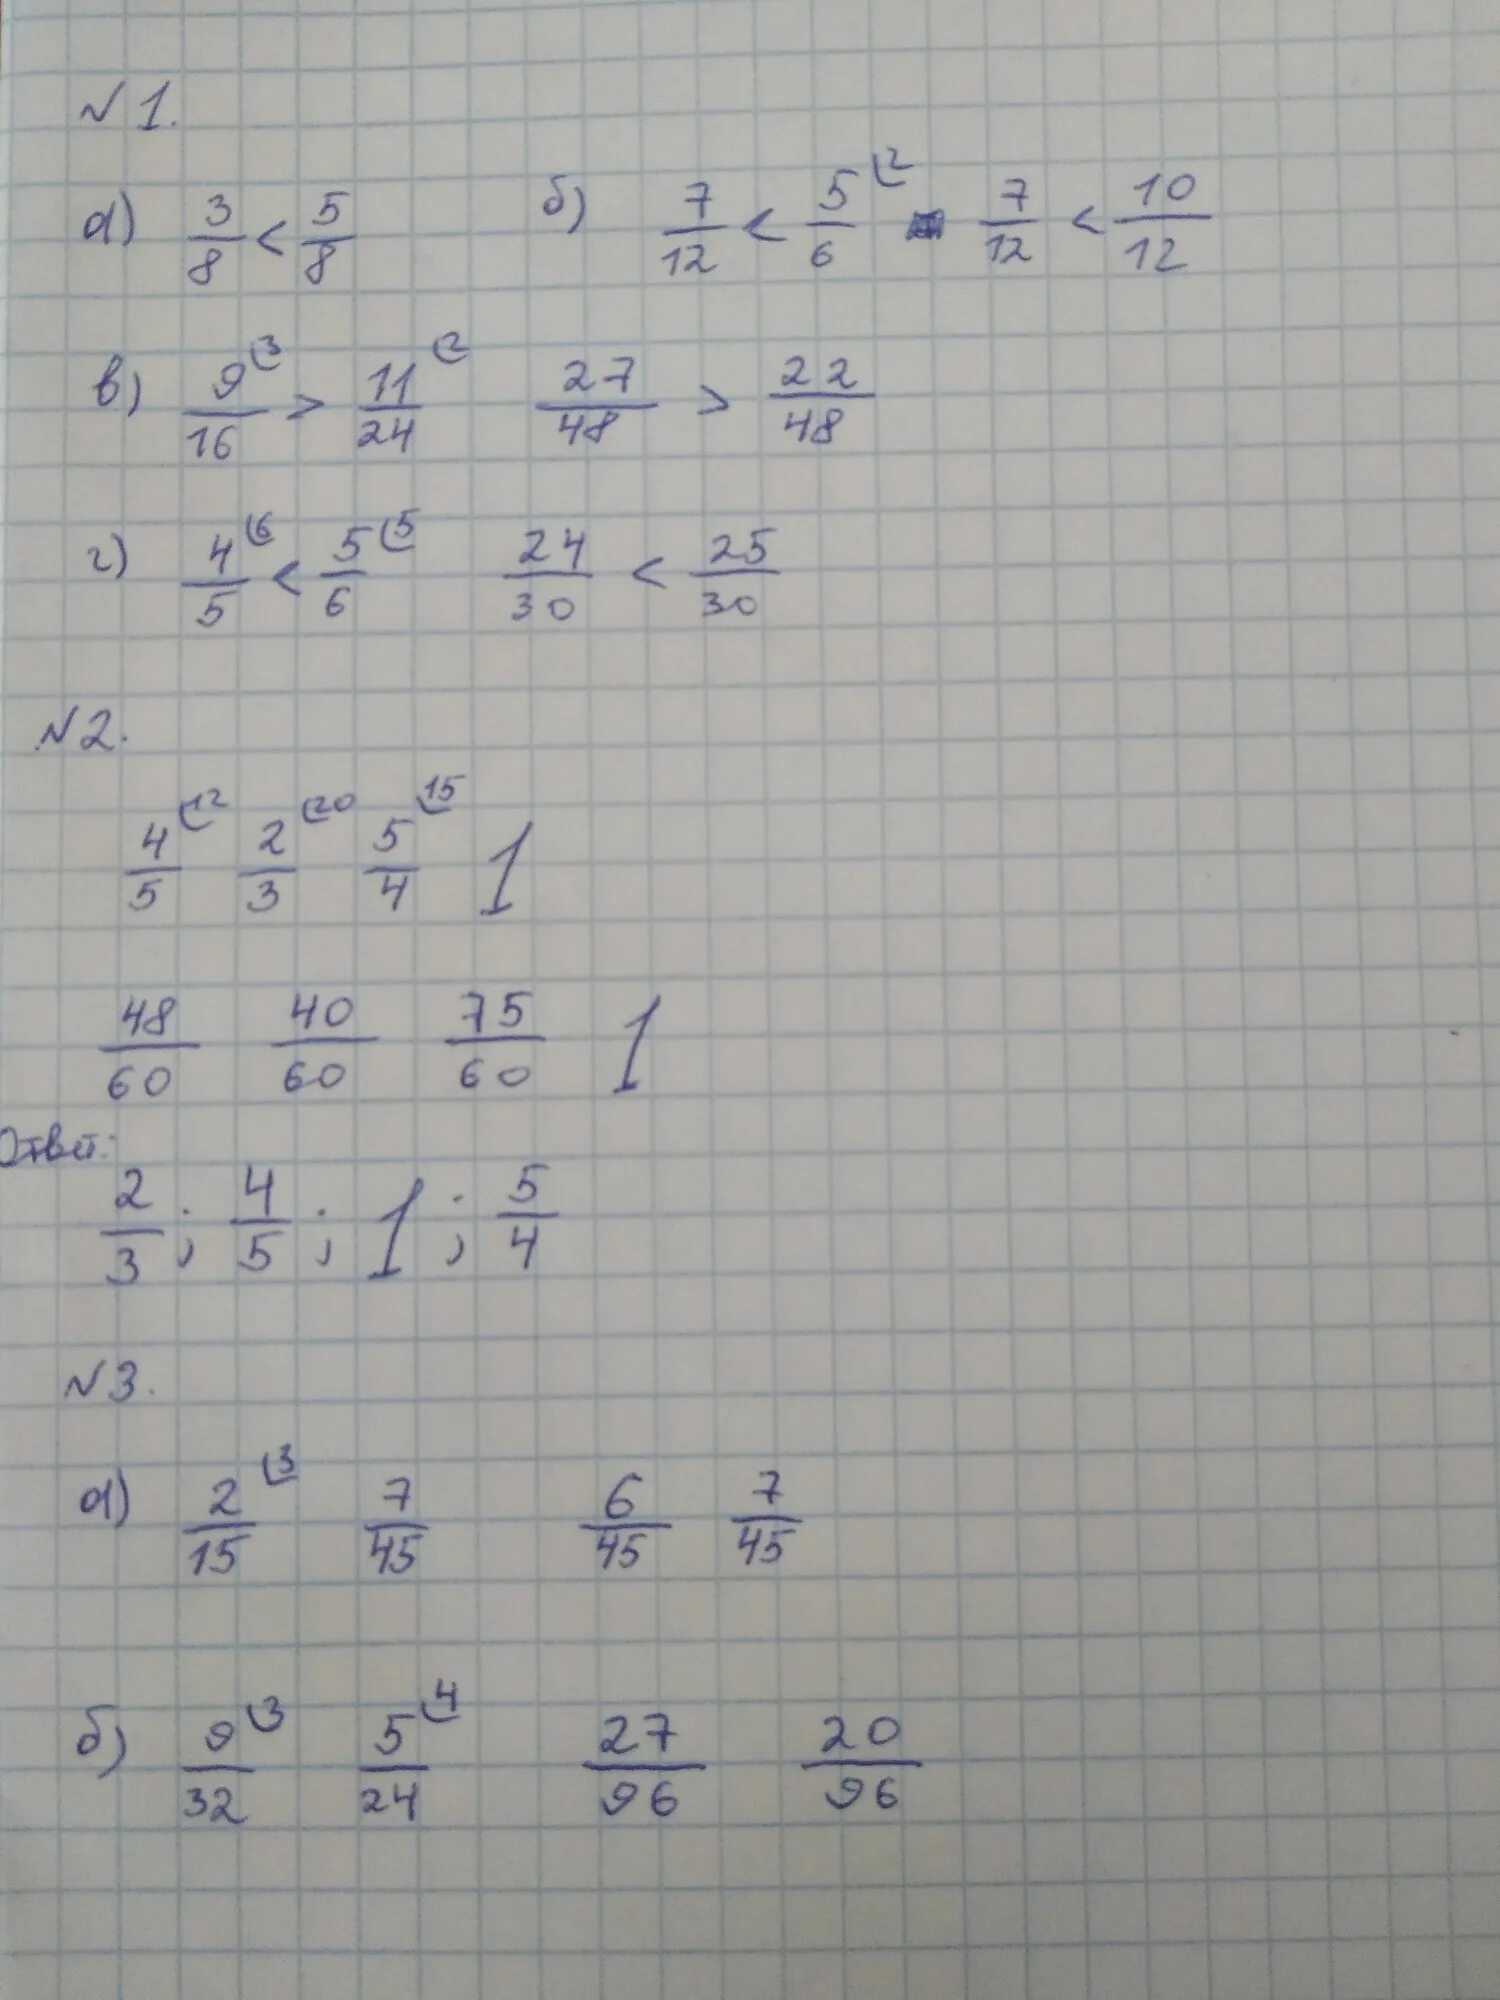 №1.
а) 3/8 < 5/8 б) 7/12 < 5/6 (2 7/12 < 10/12
в) 9/16 (3 > 11/24 (2 27/48 > 22/48
г) 4/5 (6 < 5/6 (5 24/30 < 25/30
№2.
4/5 (12 2/3 (20 5/4 (15 1
48/60 40/60 75/60 1
Ответ:
2/3 ; 4/5 ; 1 ; 5/4
№3.
а) 2/15 (3 7/45 6/45 7/45
б) 9/32 (3 5/24 (4 27/96 20/96